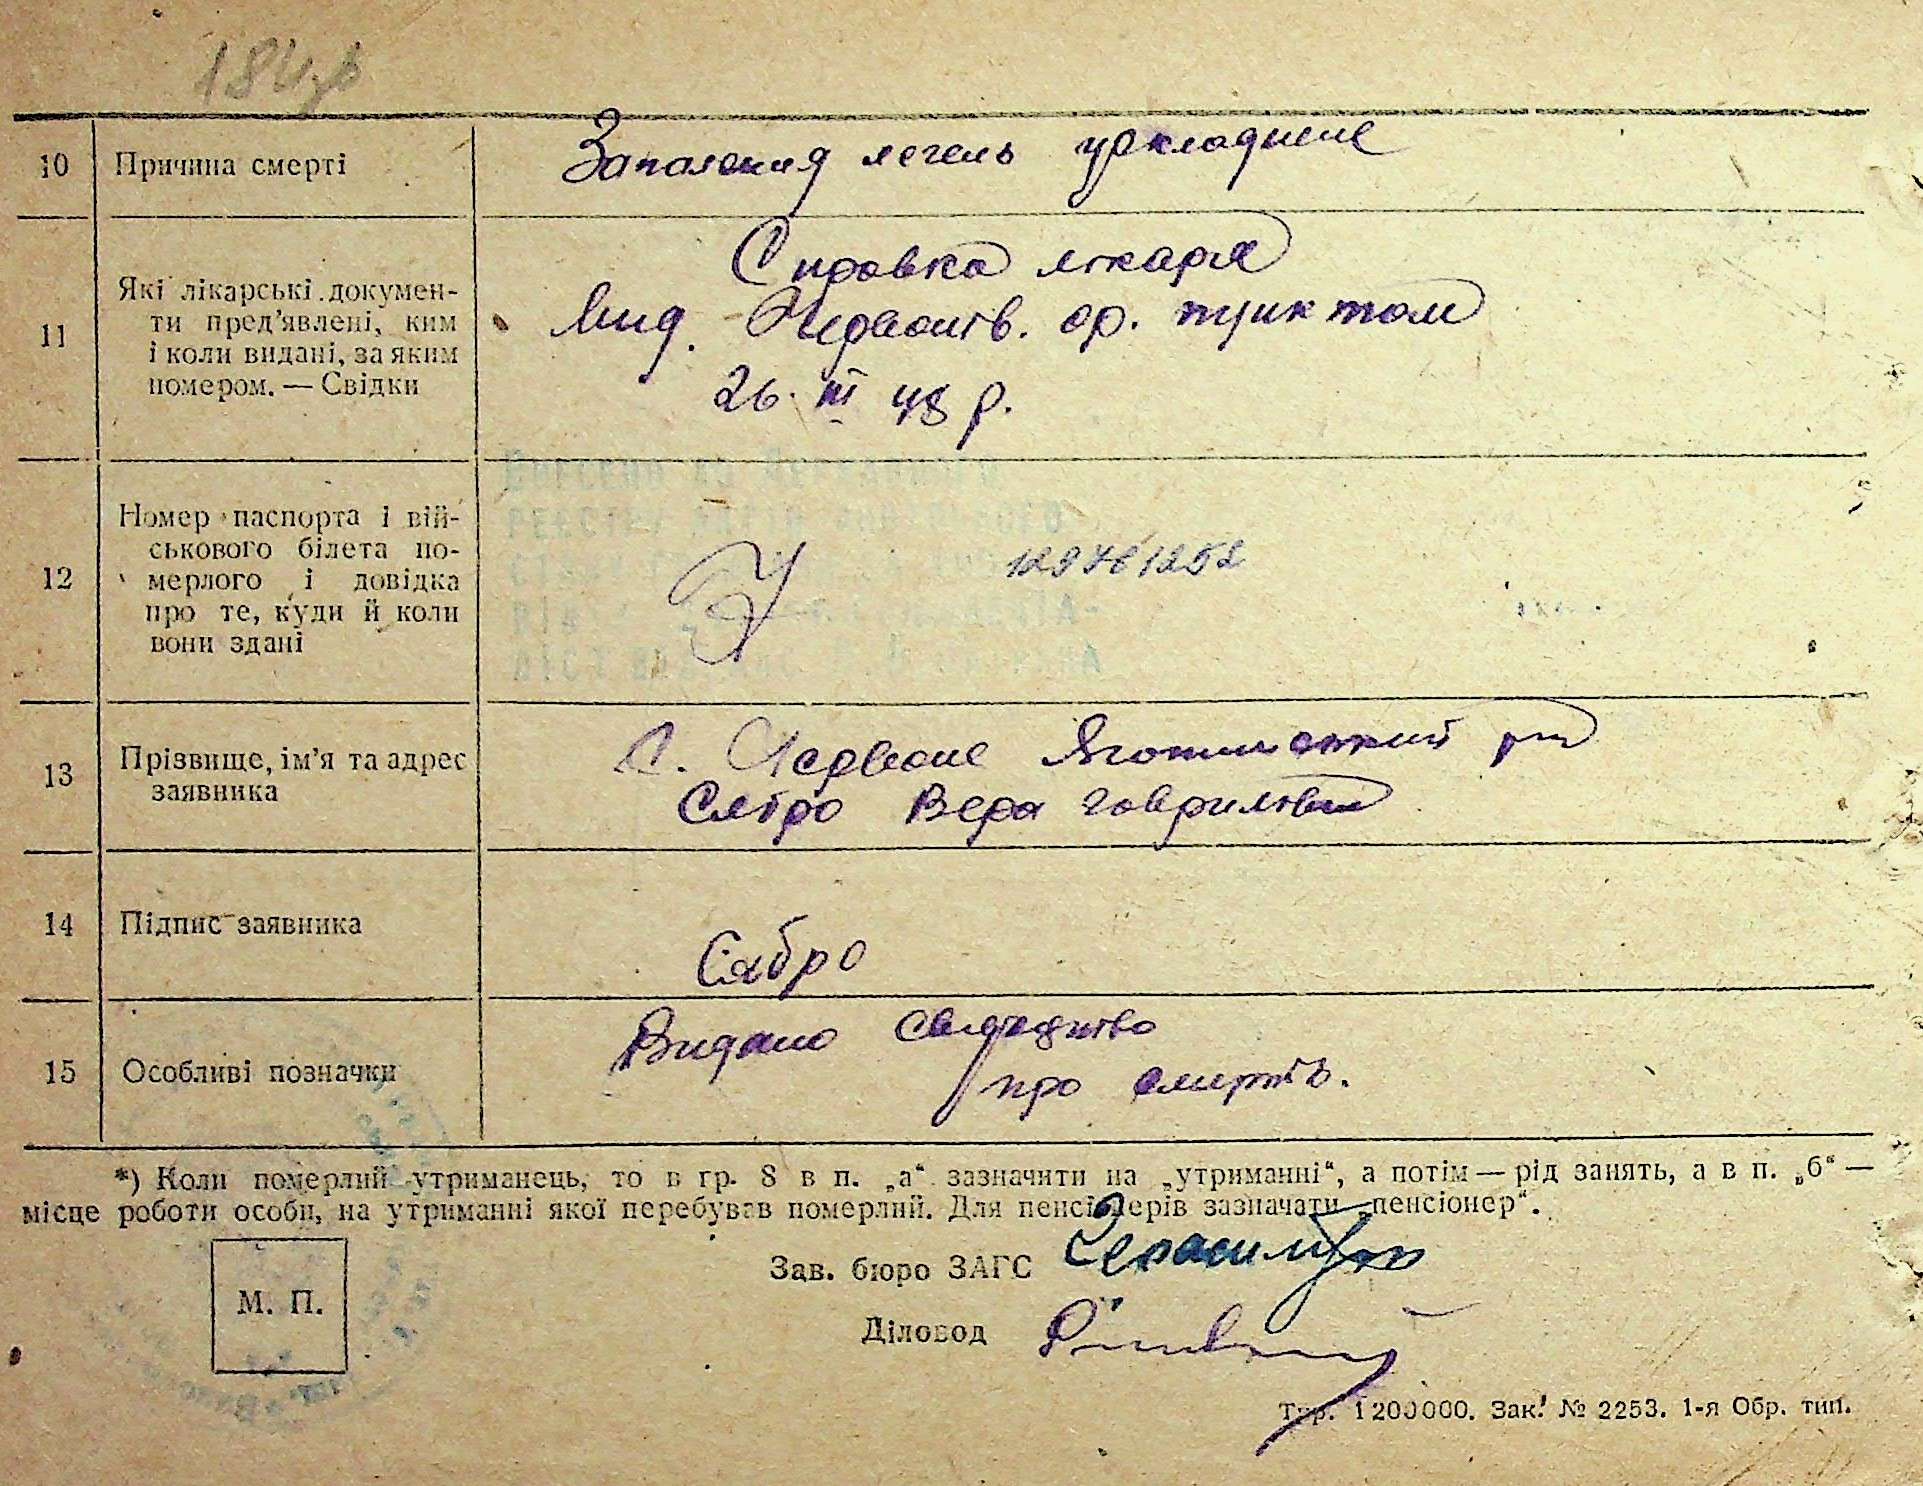 10
Причина смерті
Запаления легень ускладнене
11
Які лікарські докумен-
ти пред'явлені, ким
і коли видані, за яким
номером. — Свідки
Справка лікаря
вид. Червонів. ор. пунктом
26. III 48 р.
12
Номер паспорта і вій-
ськового білета по-
мерлого і довідка
про те, куди й коли
вони здані
13
Прізвище, ім'я та адрес
заявника
С. Червоне Яготинський рн
Сябро Вера Гавриловна
14
Підпис заявника
Сябро
15
Особливі позначки
Видано свидецтво
про смерть.
*) Коли померлий утриманець, то в гр. 8 в п. „а“ зазначити на „утриманні“, а потім — рід занять, а в п. „б“ —
місце роботи особи, на утриманні якої перебував померлий. Для пенсіонерів зазначати „пенсіонер“.
Зав. бюро ЗАГС
М. П.
Діловод
Тир. 1200000. Зак. № 2253. 1-я Обр. тип.